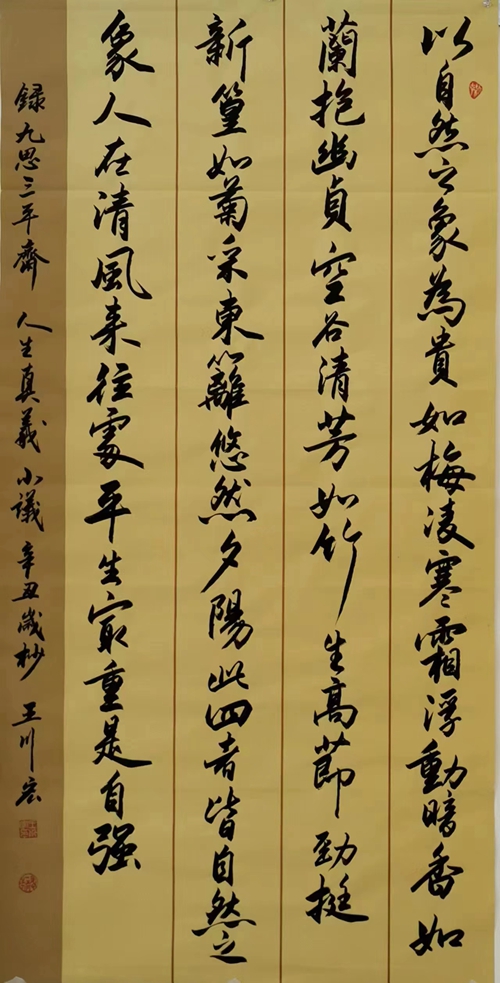 以自然之象為貴如梅凌寒霜浮動暗香如
蘭抱幽貞空谷清芳如竹生高節勁挺
新篁如菊采東籬悠然夕陽此四者皆自然之
象人在清風来往處平生最重是自强
録九思三平齋人生真義小議辛丑歲杪王川宏